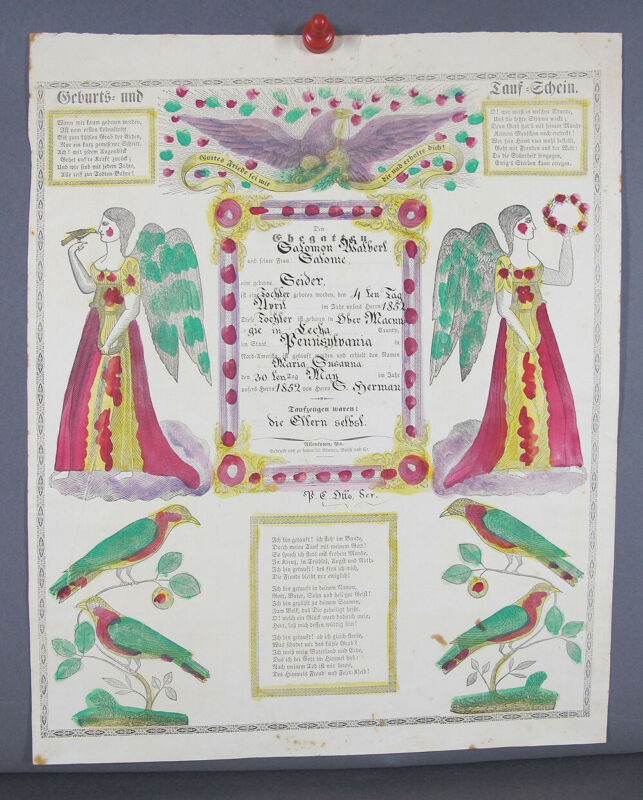 Geburts- und
Tauf-Schein.
Wenn wir kaum geboren werden,
Ist vom ersten Lebenstritt
Bis zum kühlen Grab der Erden,
Nur ein kurz gemeß'ner Schritt,
Ach! mit jedem Augenblick
Gehet uns're Kraft zurück;
Und wir sind mit jedem Jahre,
Alle reif zur Todten-Bahre!
O! wer weiß in welcher Stunde,
Uns die letzte Stimme weckt;
Denn Gott hat's mit seinem Munde
Keinem Menschen noch entdeckt!
Wer sein Haus nun wohl bestellt,
Geht mit Freuden aus der Welt;
Da die Sicherheit hingegen,
Ewig's Sterben kann erregen.
Gottes Friede sei mit
dir und erhalte dich!
Den
Ehegatten
Salomon Walbert
und seiner Frau Salome,
eine geborne Seider,
ist eine Tochter geboren worden, den 4 ten Tag
April im Jahr unsers Herrn 1852
Diese Tochter ist geboren in Ober Macun
gie in Lecha County,
im Staat Pennsylvania in
Nord-Amerika; ist getauft worden und erhielt den Namen
Maria Susanna
den 30 ten Tag May im Jahr
unsers Herrn 1852 von Herrn S. Herman
Taufzeugen waren:
die Eltern selbst.
Allentown, Pa.
Gedruckt und zu haben bei Blumer, Busch und Co.
P. C. Otto, Scr.
Ich bin getauft! ich steh' im Bunde,
Durch meine Tauf mit meinem Gott!
So sprech ich stets mit frohem Munde,
In Kreuz, in Trübsal, Angst und Noth.
Ich bin getauft! deß freu ich mich,
Die Freude bleibt mir ewiglich!
Ich bin getauft in deinem Namen,
Gott, Vater, Sohn und heil'ger Geist!
Ich bin gezählt zu deinem Saamen,
Zum Volk, das Dir geheiligt heißt.
O! welch ein Glück ward dadurch mein,
Herr, laß mich dessen würdig sein!
Ich bin getauft! ob ich gleich sterbe,
Was schadet mir das kühle Grab?
Ich weiß mein Vaterland und Erbe,
Das ich bei Gott im Himmel hab:
Nach meinem Tod ist mir bereit,
Des Himmels Freud' und Feier-Kleid!